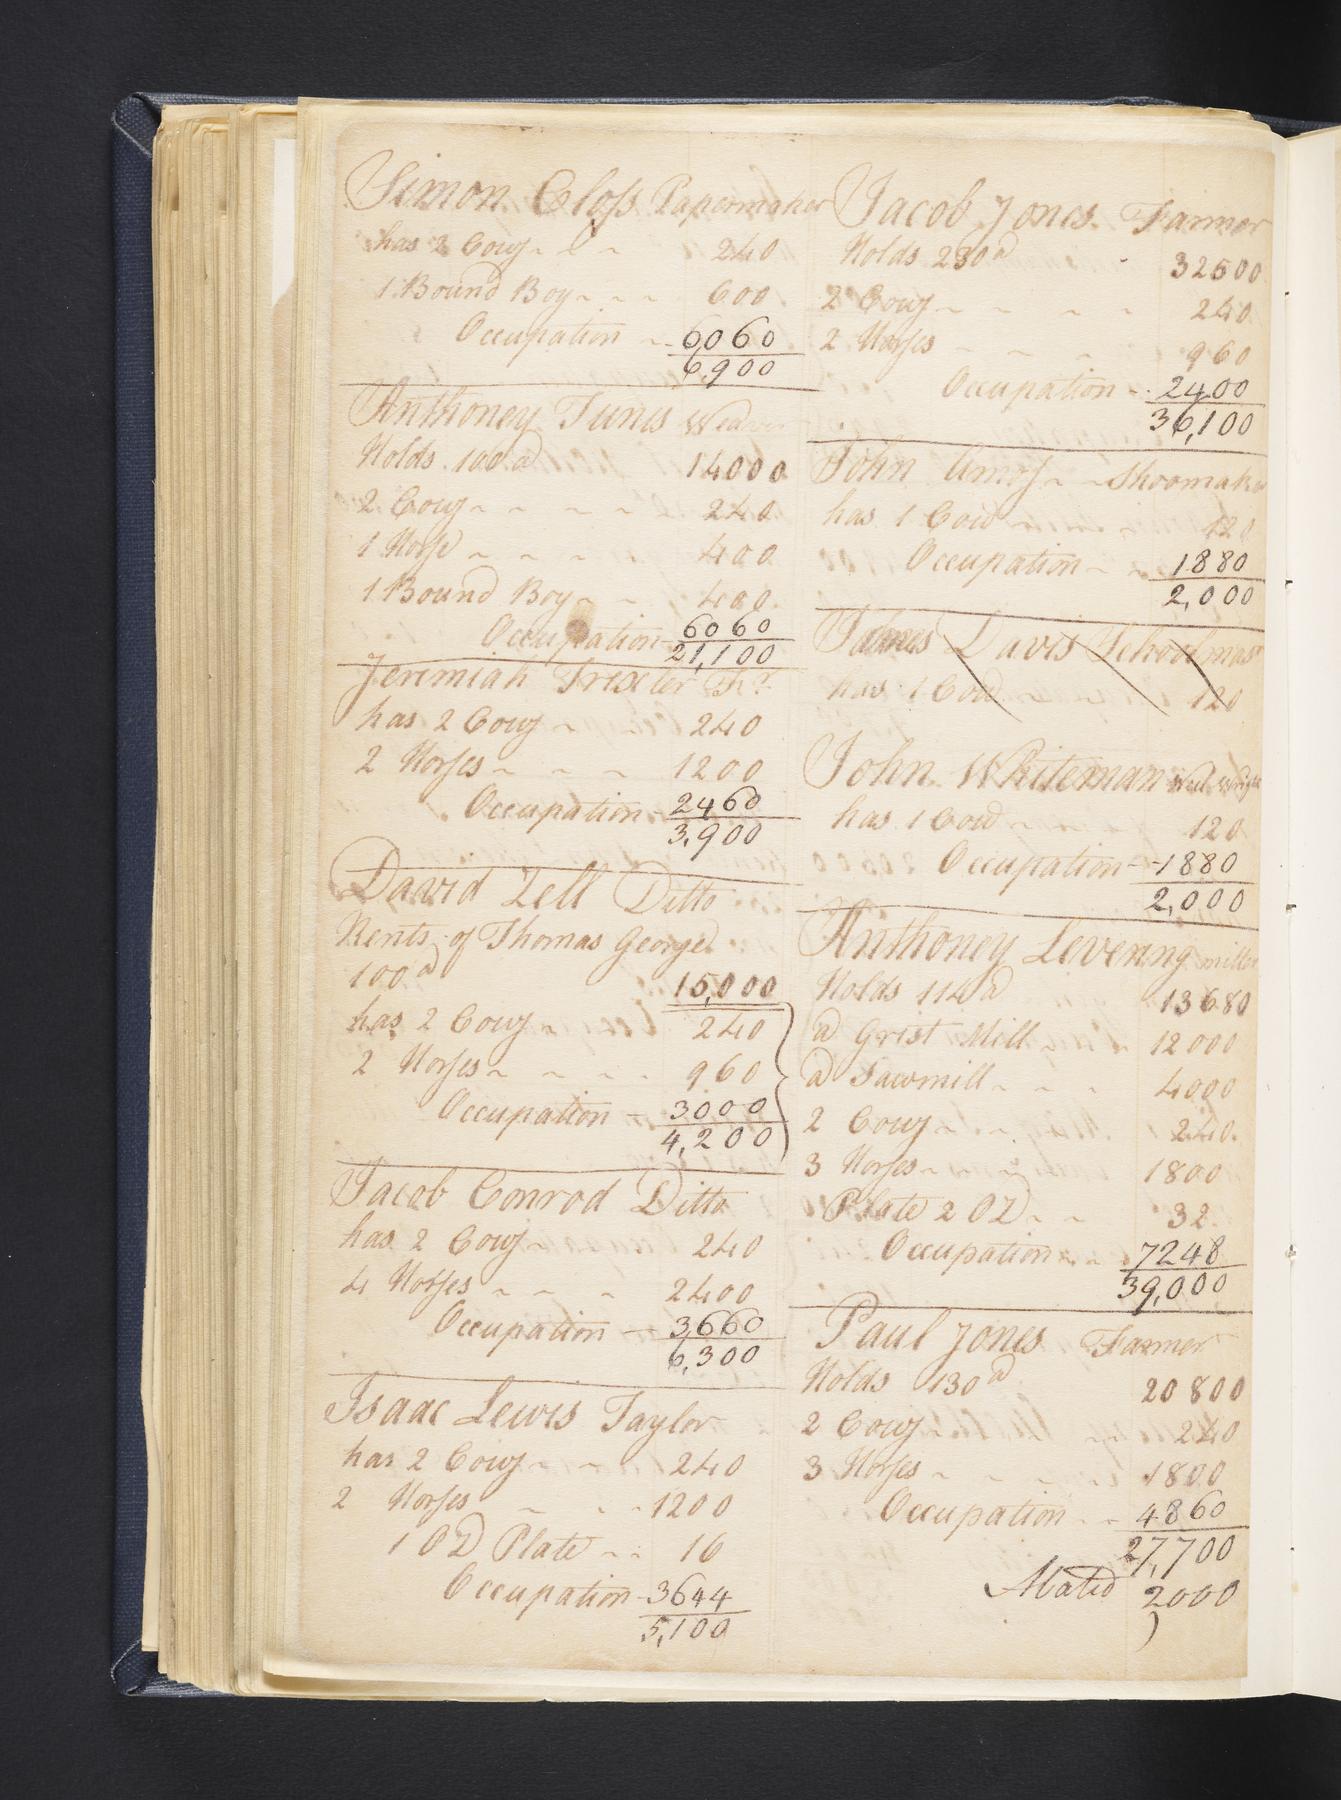 Simon Closs Papermaker
has 2 Cows 240
1 Bound Boy 600
Occupation 6060
6,900
Anthoney Tunis Weaver
Holds 100 a 14000
2 Cows 240
1 Horse 400
1 Bound Boy 400
Occupation 6060
21,100
Jeremiah Trexler
has 2 Cows 240
2 Horses 1200
Occupation 2460
3,900
David Zell Ditto
Rents of Thomas George
100 a 15,000
has 2 Cows 240
2 Horses 960
Occupation 3000
4,200
Jacob Conrod Ditto
has 2 Cows 240
4 Horses 2400
Occupation 3660
6,300
Isaac Lewis Taylor
has 2 Cows 240
2 Horses 1200
1 OZ Plate 16
Occupation 3644
5,100
Jacob Jones Farmer
Holds 230 a 32500
2 Cows 240
2 Horses 960
Occupation 2400
36,100
John Amos Shoomaker
has 1 Cow 120
Occupation 1880
2,000
James Davis Schoolmasr
has 1 Cow 120
John Whiteman Weel Wright
has 1 Cow 120
Occupation 1880
2,000
Anthoney Levering miller
Holds 114 a 13680
a Grist Mill 12000
a Sawmill 4000
2 Cows 240
3 Horses 1800
Plate 2 OZ 32
Occupation 7248
39,000
Paul Jones Farmer
Holds 130 a 20800
2 Cows 240
3 Horses 1800
Occupation 4860
27,700
Abated 2000